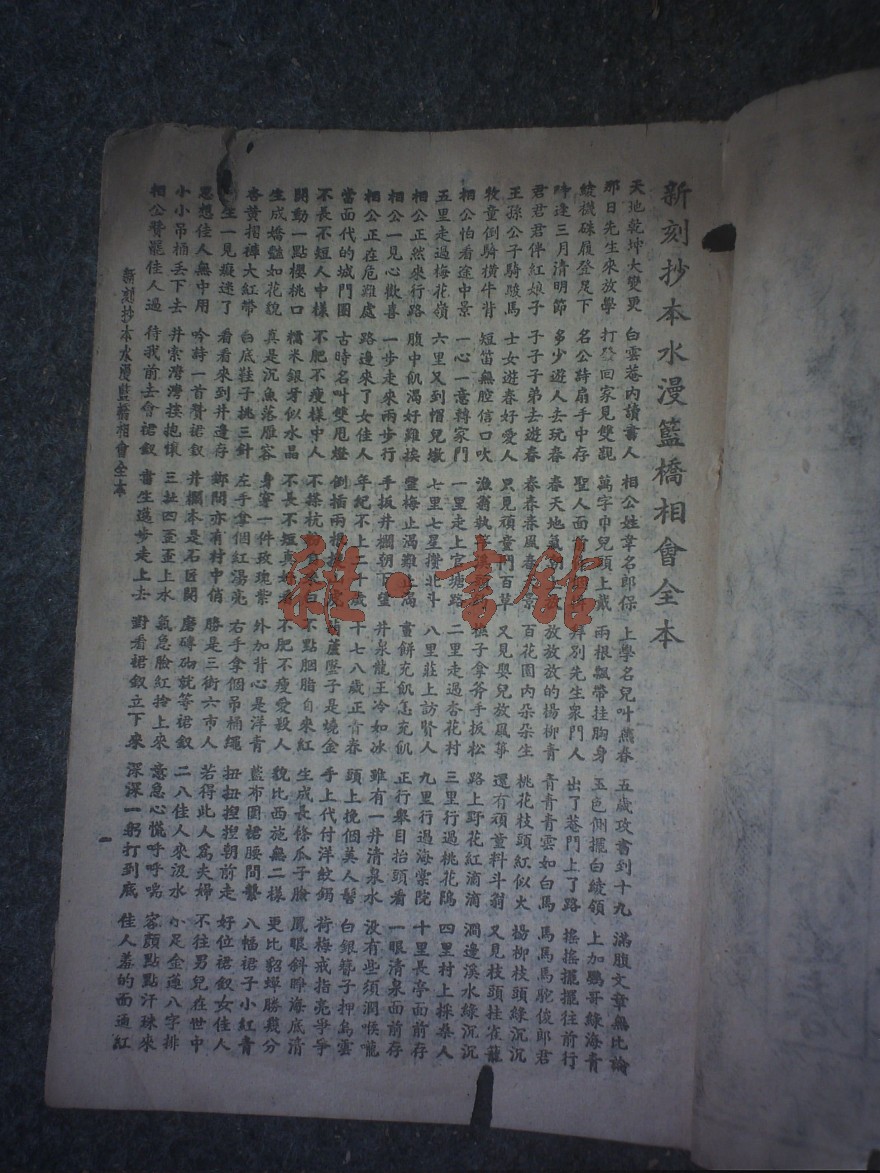 新刻抄本水漫籃橋相會全本
天地乾坤大變更 白雲菴內讀書人 相公姓韋名郎保 上學名兒叶燕春 五歲攻書到十九 滿腹文章無比論
那日先生來放學 打發回家見雙親 萬字巾兒頭上戴 兩根飄帶挂胸身 玉色側擺白綾領 上加鸚哥綠海青
綾機硃履登足下 名公詩扇手中存 聖人面前 拜別先生衆門人 出了菴門上了路 搖搖擺擺往前行
時逢三月清明節 多少遊人去玩春 春天地氣 放放放的楊柳青 青青青雲如白馬 馬馬馬駝俊郎君
君君君伴紅娘子 子子子弟去遊春 春春春風春景 百花園內朵朵生 桃花枝頭紅似火 楊柳枝頭綠沉沉
王孫公子騎駿馬 士女遊春好愛人 只見頑童鬥百草 又見嬰兒放風箏 還有頑童料斗翁 又見枝頭挂雀籠
牧童倒騎橫牛背 短笛無腔信口吹 漁翁執竿 樵子拿斧手扳松 路上野花紅滴滴 澗邊溪水綠沉沉
相公怕看途中景 一心一意轉家門 一里走上官塘路 二里走過杏花村 三里行過桃花塢 四里村上採桑人
五里走過梅花嶺 六里又到帽兒墩 七里七星攢北斗 八里莊上訪賢人 九里行過海棠院 十里長亭面前存
相公正然來行路 腹中飢渴好難挨 望梅止渴難止渴 畫餅充飢怎充飢 正行舉目抬頭看 一眼清泉面前存
相公一見心歡喜 一步走來兩步行 手扳井欄朝下望 井泉龍王冷如冰 雖有一井清泉水 没有些須潤喉嚨
相公正在危難處 路邊來了女佳人 年紀不上二十歲 十七八歲正青春 頭上挽個美人髻 白銀簪子押烏雲
當面代的城門圈 古時名叫雙甩燈 倒插兩根 葫蘆墜子是燒金 手上代付洋紋鐲 荷梅戒指亮爭爭
不長不短人中樣 不肥不瘦樣中人 不搽杭粉自來白 不點胭脂自來紅 生成長條瓜子臉 鳳眼斜睁海底清
閗動一點櫻桃口 糯米銀牙似水晶 不長不短真好看 不肥不瘦愛殺人 貌比西施無二樣 更比貂蟬勝幾分
生成嬌艷如花貌 真是沉魚落雁容 身穿一件玫瑰紫 外加背心是洋青 藍布圍裙腰間繫 八幅裙子小紅青
杏黃摺褲大紅帶 白底鞋子挑三針 左手拿個紅漏亮 右手拿個吊桶繩 扭扭捏捏朝前走 好位裙釵女佳人
生一見癡迷了 看看來到井邊存 鄉間亦有村中俏 勝是三街六市人 若得此人爲夫婦 不往男兒在世中
思想佳人無中用 吟詩一首贊裙釵 井欄本是石匠開 磨磚砌就等裙釵 二八佳人來汲水 小足金蓮八字排
小小吊桶丢下去 井索灣灣挨抱懷 三扯四盪盪上水 氣急臉紅拎上來 意急心慌呼呼喘 容顏點點汗珠來
相公贊罷佳人過 待我前去會裙釵 書生進步走上去 對看裙釵立下來 深深一躬打到底 佳人羞的面通紅
新刻抄本水漫籃橋相會全本
雜·書館